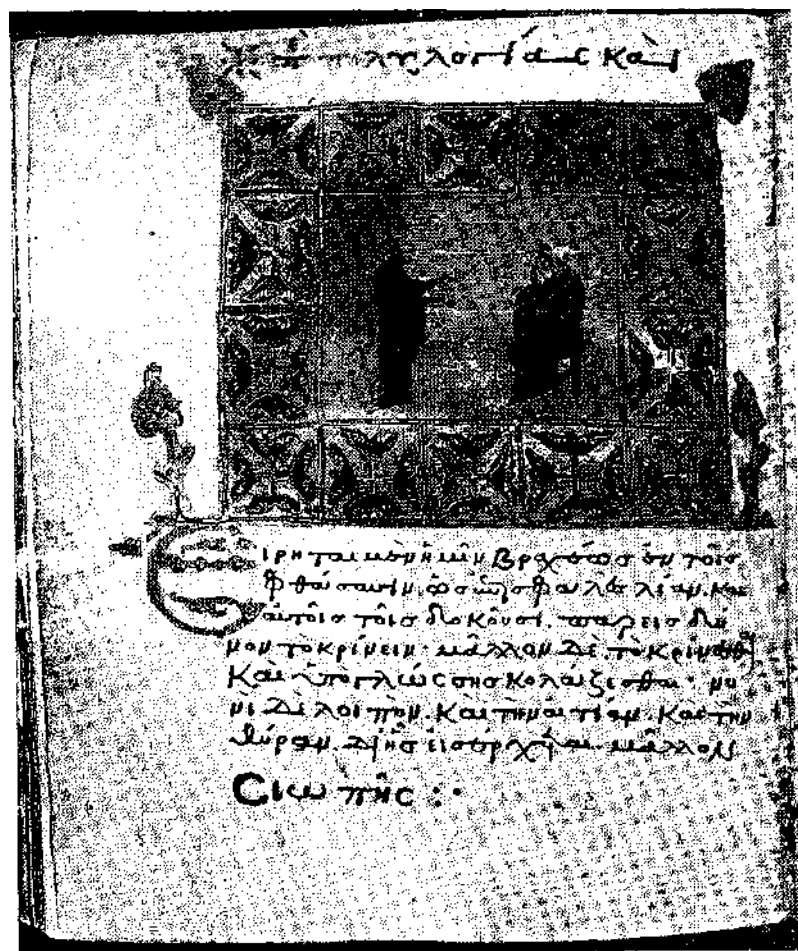 Περὶ πολυλογίας καὶ
Εἴρηται μὲν ἡμῖν βραχέως ἐν τοῖς
φθάσασιν. ὡς ἐπισφαλὲς λίαν. καὶ
αὐτοῖς τοῖς δοκοῦσι. παρεισδῦ
νον τὸ κρίνειν· μᾶλλον δὲ τὸ κρίνεσθαι
καὶ ὑπὸ γλώσσης κολάζεσθαι· νυ
νὶ δὲ λοιπὸν. καὶ τὴν αἰτίαν. καὶ τὴν
θύραν. δι' ἧς εἰσέρχεται μᾶλλον
σιωπῆς :·